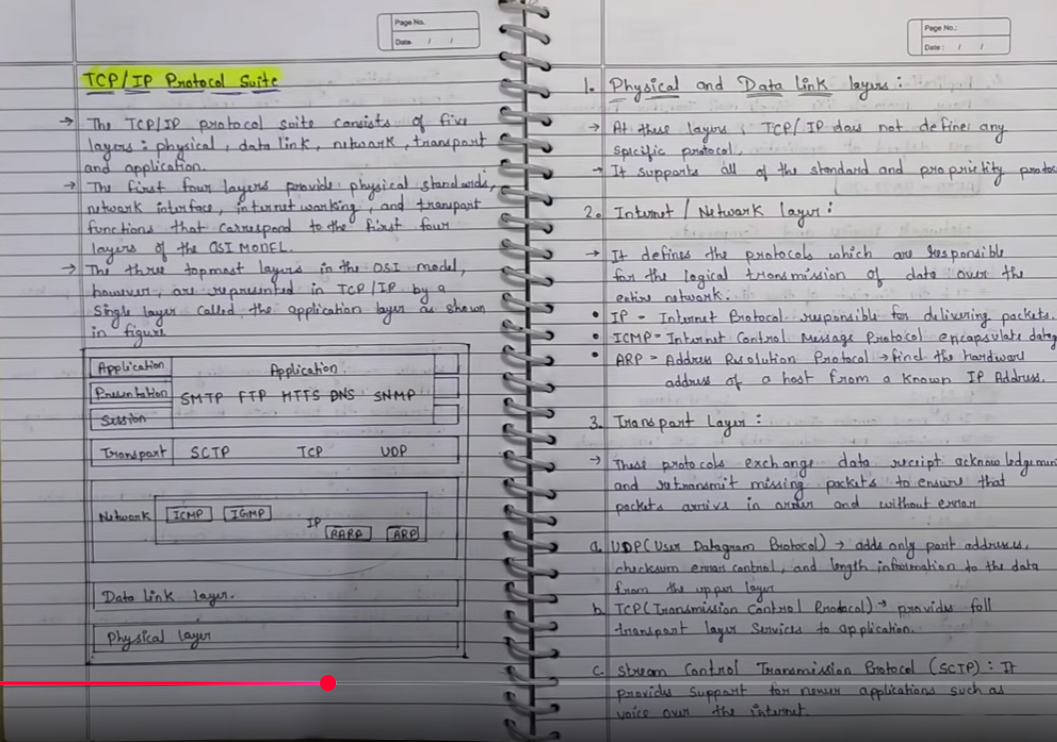 Page No.
Date / /
TCP/IP Protocol Suite
→ The TCP/IP protocol suite consists of five
layers : physical, data link, network, transport
and application.
→ The first four layers provide physical standards,
network interface, internet working, and transport
functions that correspond to the first four
layers of the OSI MODEL.
→ The three topmost layers in the OSI model,
however, are represented in TCP/IP by a
single layer called the application layer as shown
in figure
Application
Application
Presentation
SMTP FTP HTTS DNS SNMP
Session
Transport SCTP TCP UDP
Network ICMP IGMP
IP
RARP ARP
Data link layer.
Physical layer
Page No.:
Date : / /
1. Physical and Data Link layers :
→ At these layers, TCP/IP does not define any
specific protocol.
→ It supports all of the standard and propriility protoc
2. Internet / Network layer :
→ It defines the protocols which are responsible
for the logical transmission of data over the
entire network.
• IP - Internet Protocol responsible for delivering packets.
• ICMP - Internet Control Message Protocol encapsulate datag
• ARP - Address Resolution Protocol → find the hardware
address of a host from a known IP Address.
3. Transport Layer :
→ These protocols exchange data receipt acknowledgement
and retransmit missing packets to ensure that
packets arrive in order and without error
a. UDP (User Datagram Protocol) → adds only port addresses,
checksum error control, and length information to the data
from the upper layer
b. TCP (Transmission Control Protocol) → provides full
transport layer Services to application.
c. Stream Control Transmission Protocol (SCTP) : It
provides support for newer applications such as
voice over the internet.